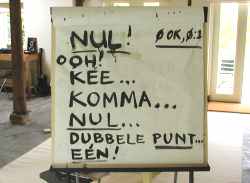 NUL! Ø OK, Ø:1
OOH!
KEE...
KOMMA...
NUL...
DUBBELE PUNT...
EÉN!